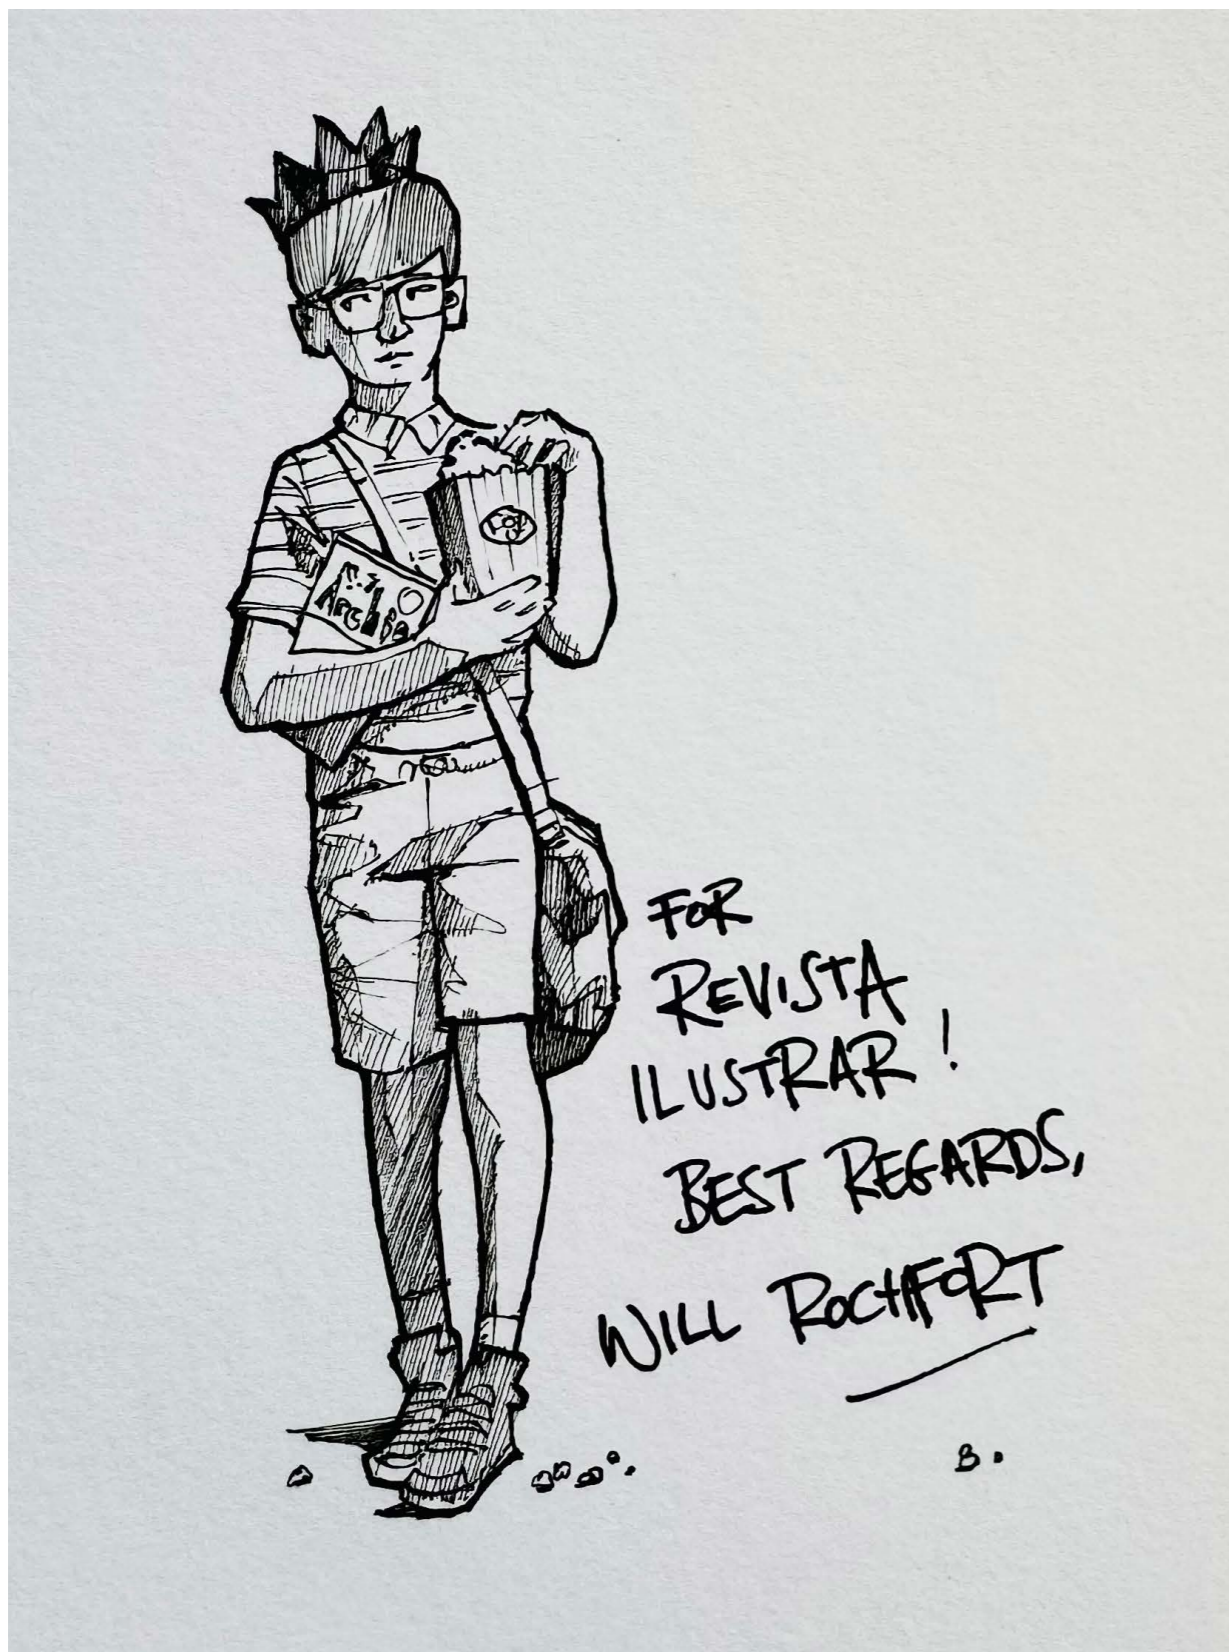 Archie
FOR
REVISTA
ILUSTRAR!
BEST REGARDS,
WILL ROCHFORT
B.